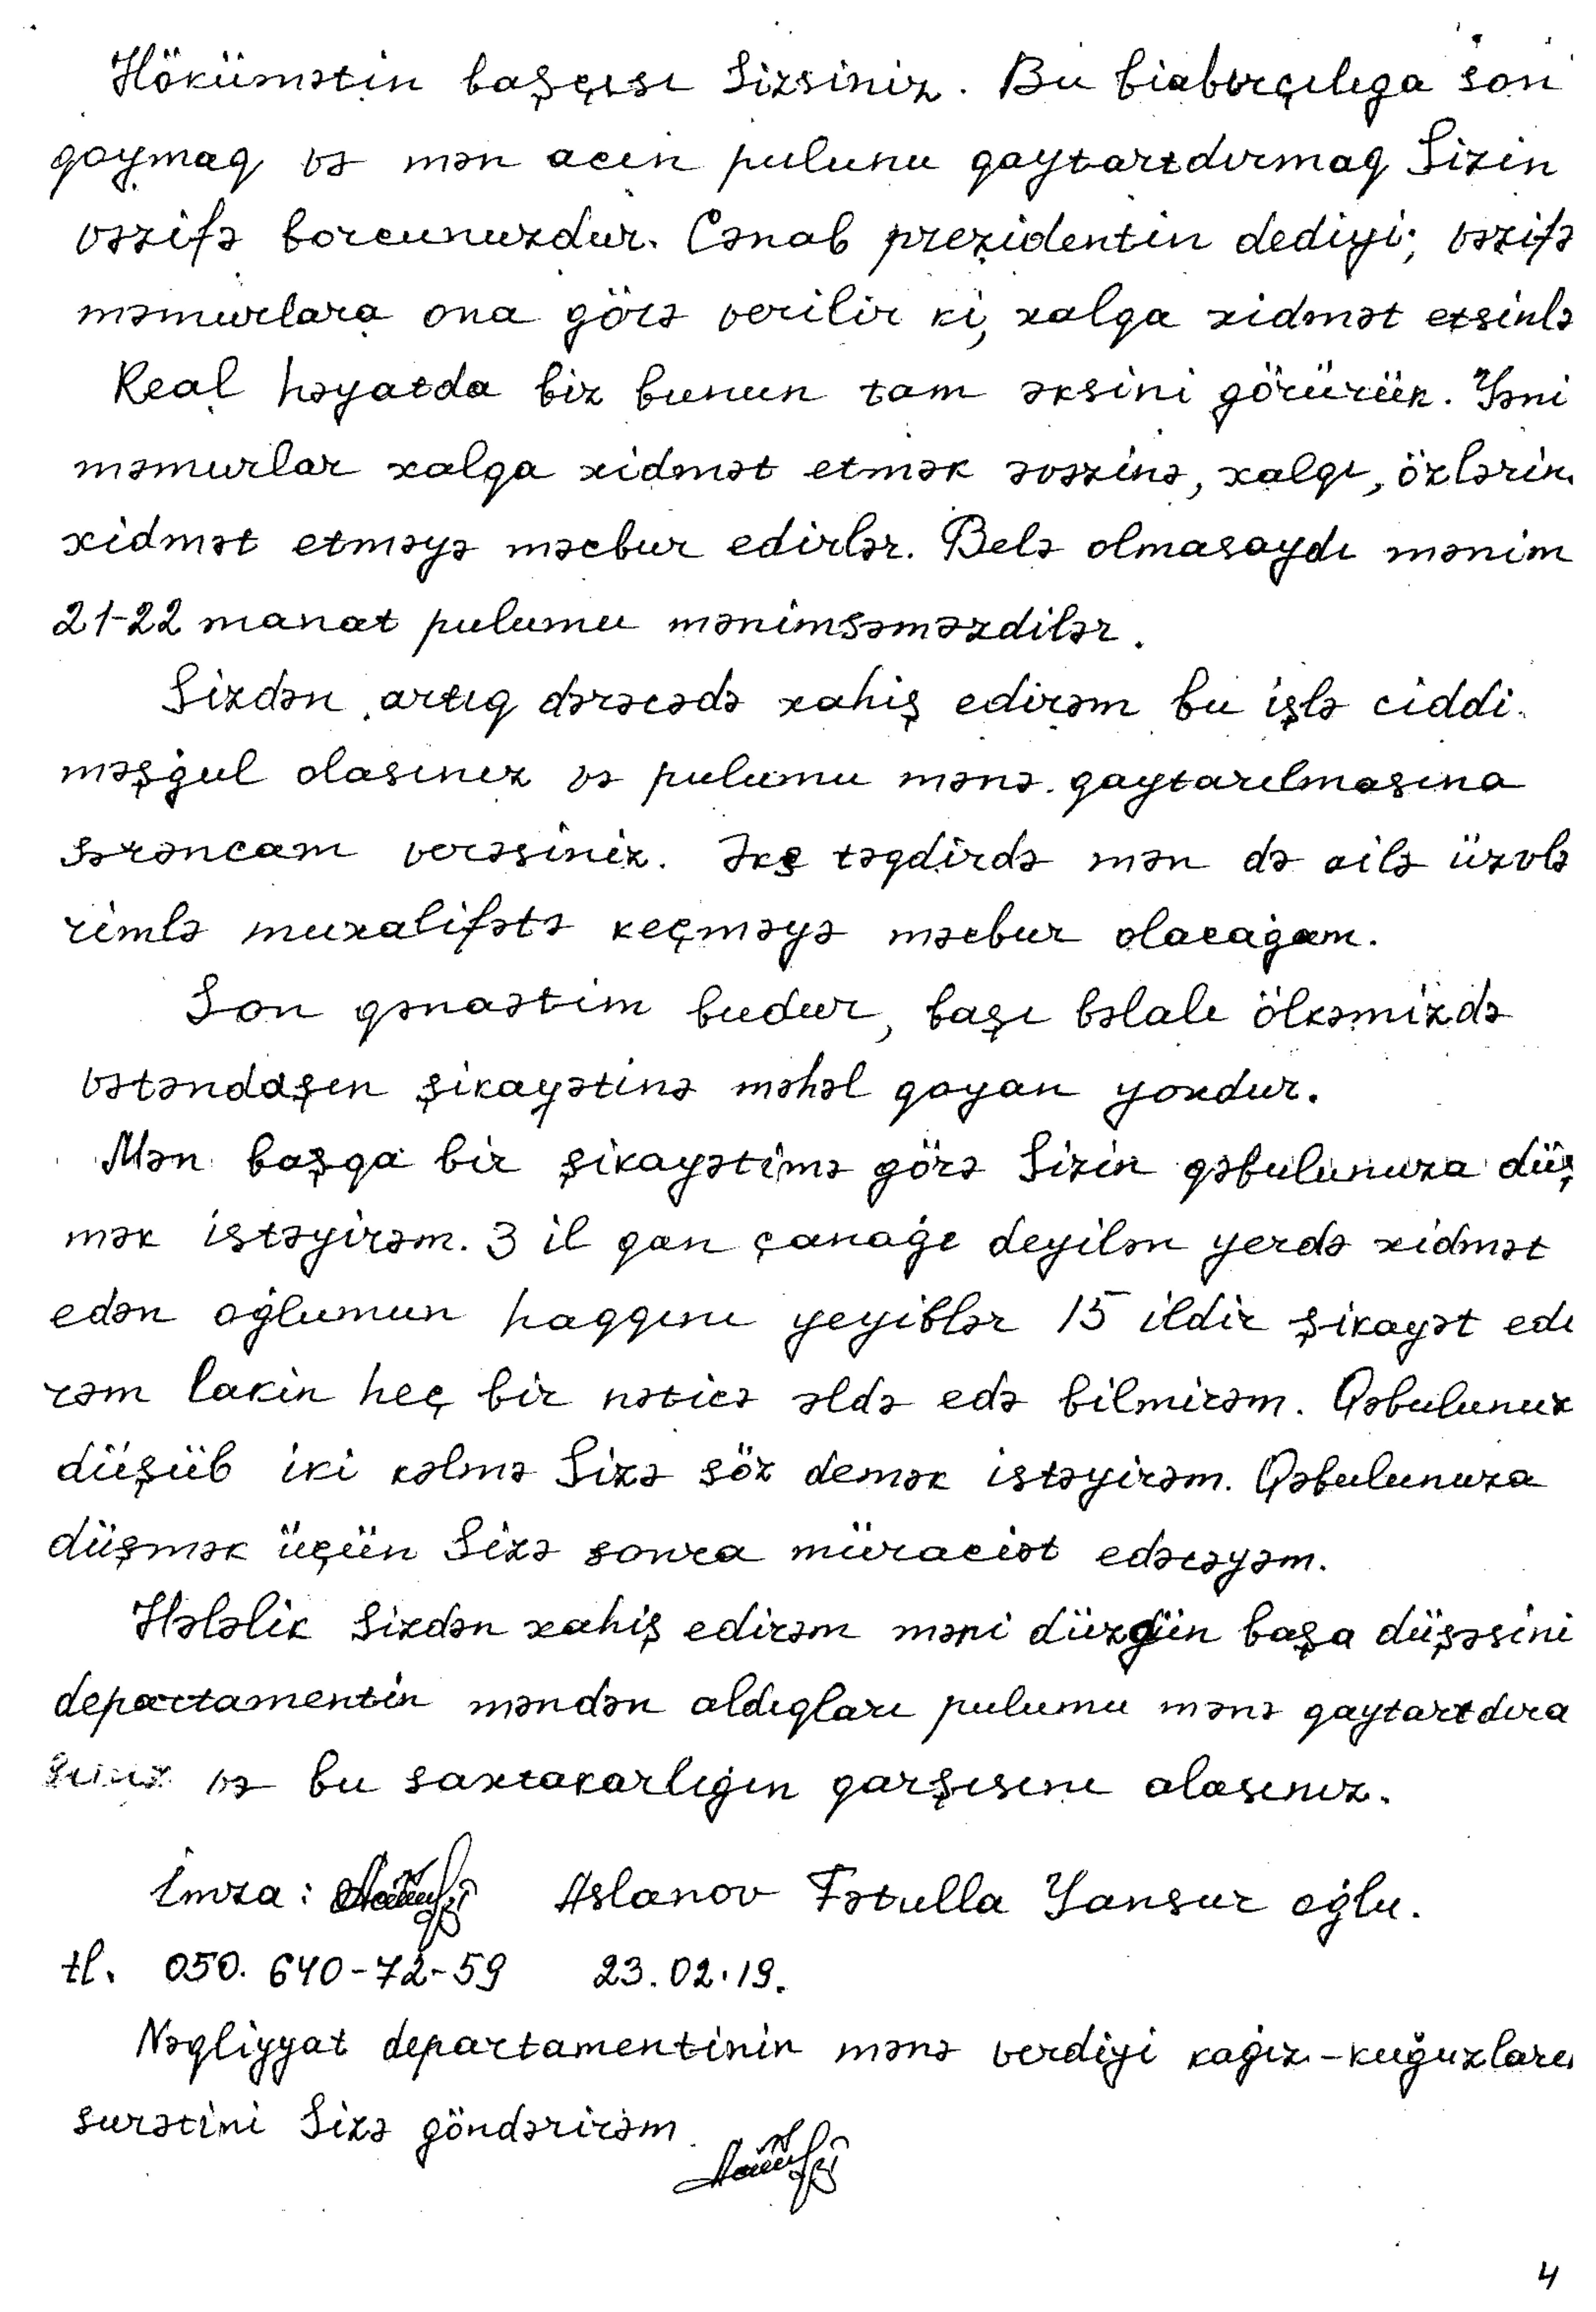 Hökümətin başçısı Sizsiniz. Bu biabırçılıga son
qoymaq və mən acın pulunu qaytartdırmaq Sizin
vəzifə borcunuzdur. Cənab prezidentin dediyi; vəzifə
məmurlara ona görə verilir ki, xalqa xidmət etsinlə
Real həyatda biz bunun tam əksini görürük. Yəni
məmurlar xalqa xidmət etmək əvəzinə, xalqı, özlərin
xidmət etməyə məcbur edirlər. Belə olmasaydı mənim
21-22 manat pulumu mənimsəməzdilər.
Sizdən artıq dərəcədə xahiş edirəm bu işlə ciddi
məşğul olasınız və pulumu mənə qaytarılmasına
sərəncam verəsiniz. Əks təqdirdə mən də ailə üzvlə
rimlə muxalifətə keçməyə məcbur olacağam.
Son qənaətim budur, başı bəlalı ölkəmizdə
vətəndaşın şikayətinə məhəl qoyan yoxdur.
Mən başqa bir şikayətimə görə Sizin qəbulunuza düş
mək istəyirəm. 3 il qan çanağı deyilən yerdə xidmət
edən oğlumun haqqını yeyiblər 15 ildir şikayət edi
rəm lakin heç bir nəticə əldə edə bilmirəm. Qəbulunuz
düşüb iki kəlmə Sizə söz demək istəyirəm. Qəbulunuza
düşmək üçün Sizə sonra müraciət edəcəyəm.
Hələlik Sizdən xahiş edirəm məni düzgün başa düşəsini
departamentin məndən aldıqları pulumu mənə qaytartdıra
sınız və bu saxtakarlığın qarşısını alasınız.
İmza: Aslanov Fətulla Yansur oğlu.
tl. 050. 640-72-59 23.02.19.
Nəqliyyat departamentinin mənə verdiyi kağız-kuğuzları
surətini Sizə göndərirəm
4